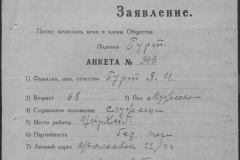 Заявление.
Прошу зачислить меня в члены Общества
Подпись Бурт
АНКЕТА № 343
1) Фамилия, имя, отчество Бурт Я. И.
2) Возраст 68 3) Пол Мужской
4) Социальное положение служащий
5) Место работы
6) Партийность Бес парт
7) Личный адрес 22/24